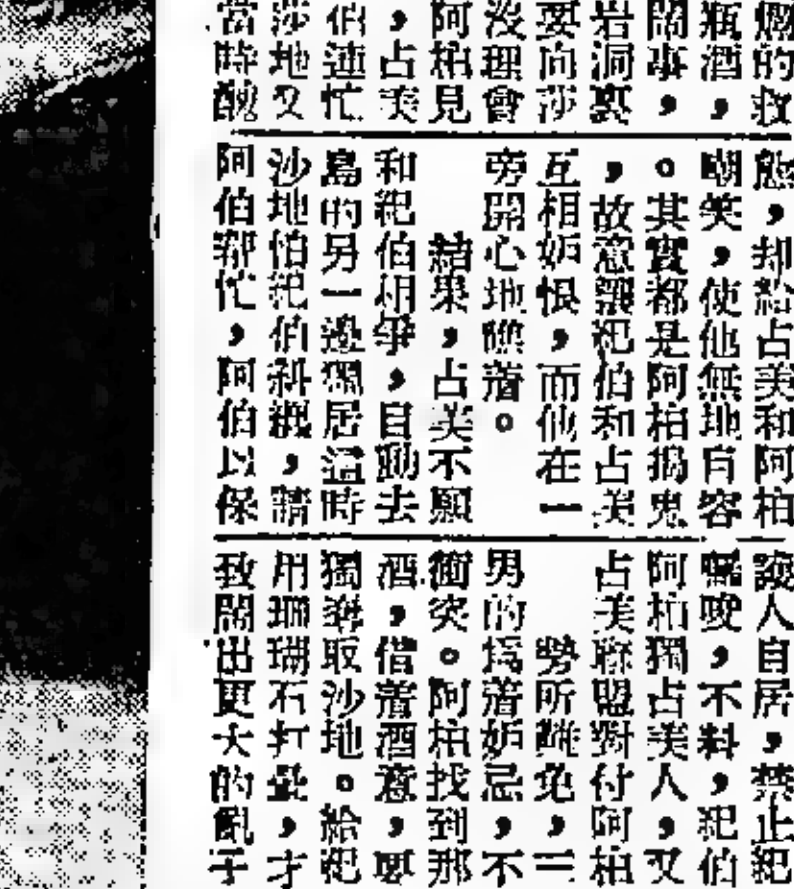 燃的救
瓶酒，
鬧事，
岩洞裏
要向莎
沒理會
阿柏見
，占美
俏連忙
莎地又
當時醜
愈，却給占美和阿柏
嘲笑，使他無地自容
。其實都是阿柏搗鬼
，故意讓祀伯和占美
互相妬恨，而他在一
旁開心地瞧着。
結果，占美不願
和祀伯相爭，自動去
島的另一邊獨居這時
沙地怕祀伯糾纏，請
阿伯幫忙，阿伯以保
護人自居，禁止祀
嘱唆，不料，祀伯
阿柏獨占美人，又
占美聯盟對付阿柏
勢所難免，三
男的爲着妬忌，不
衝突。阿柏找到那
酒，借着酒意，要
獨奪取沙地。給祀
用珊瑚石打暈，才
致鬧出更大的亂子